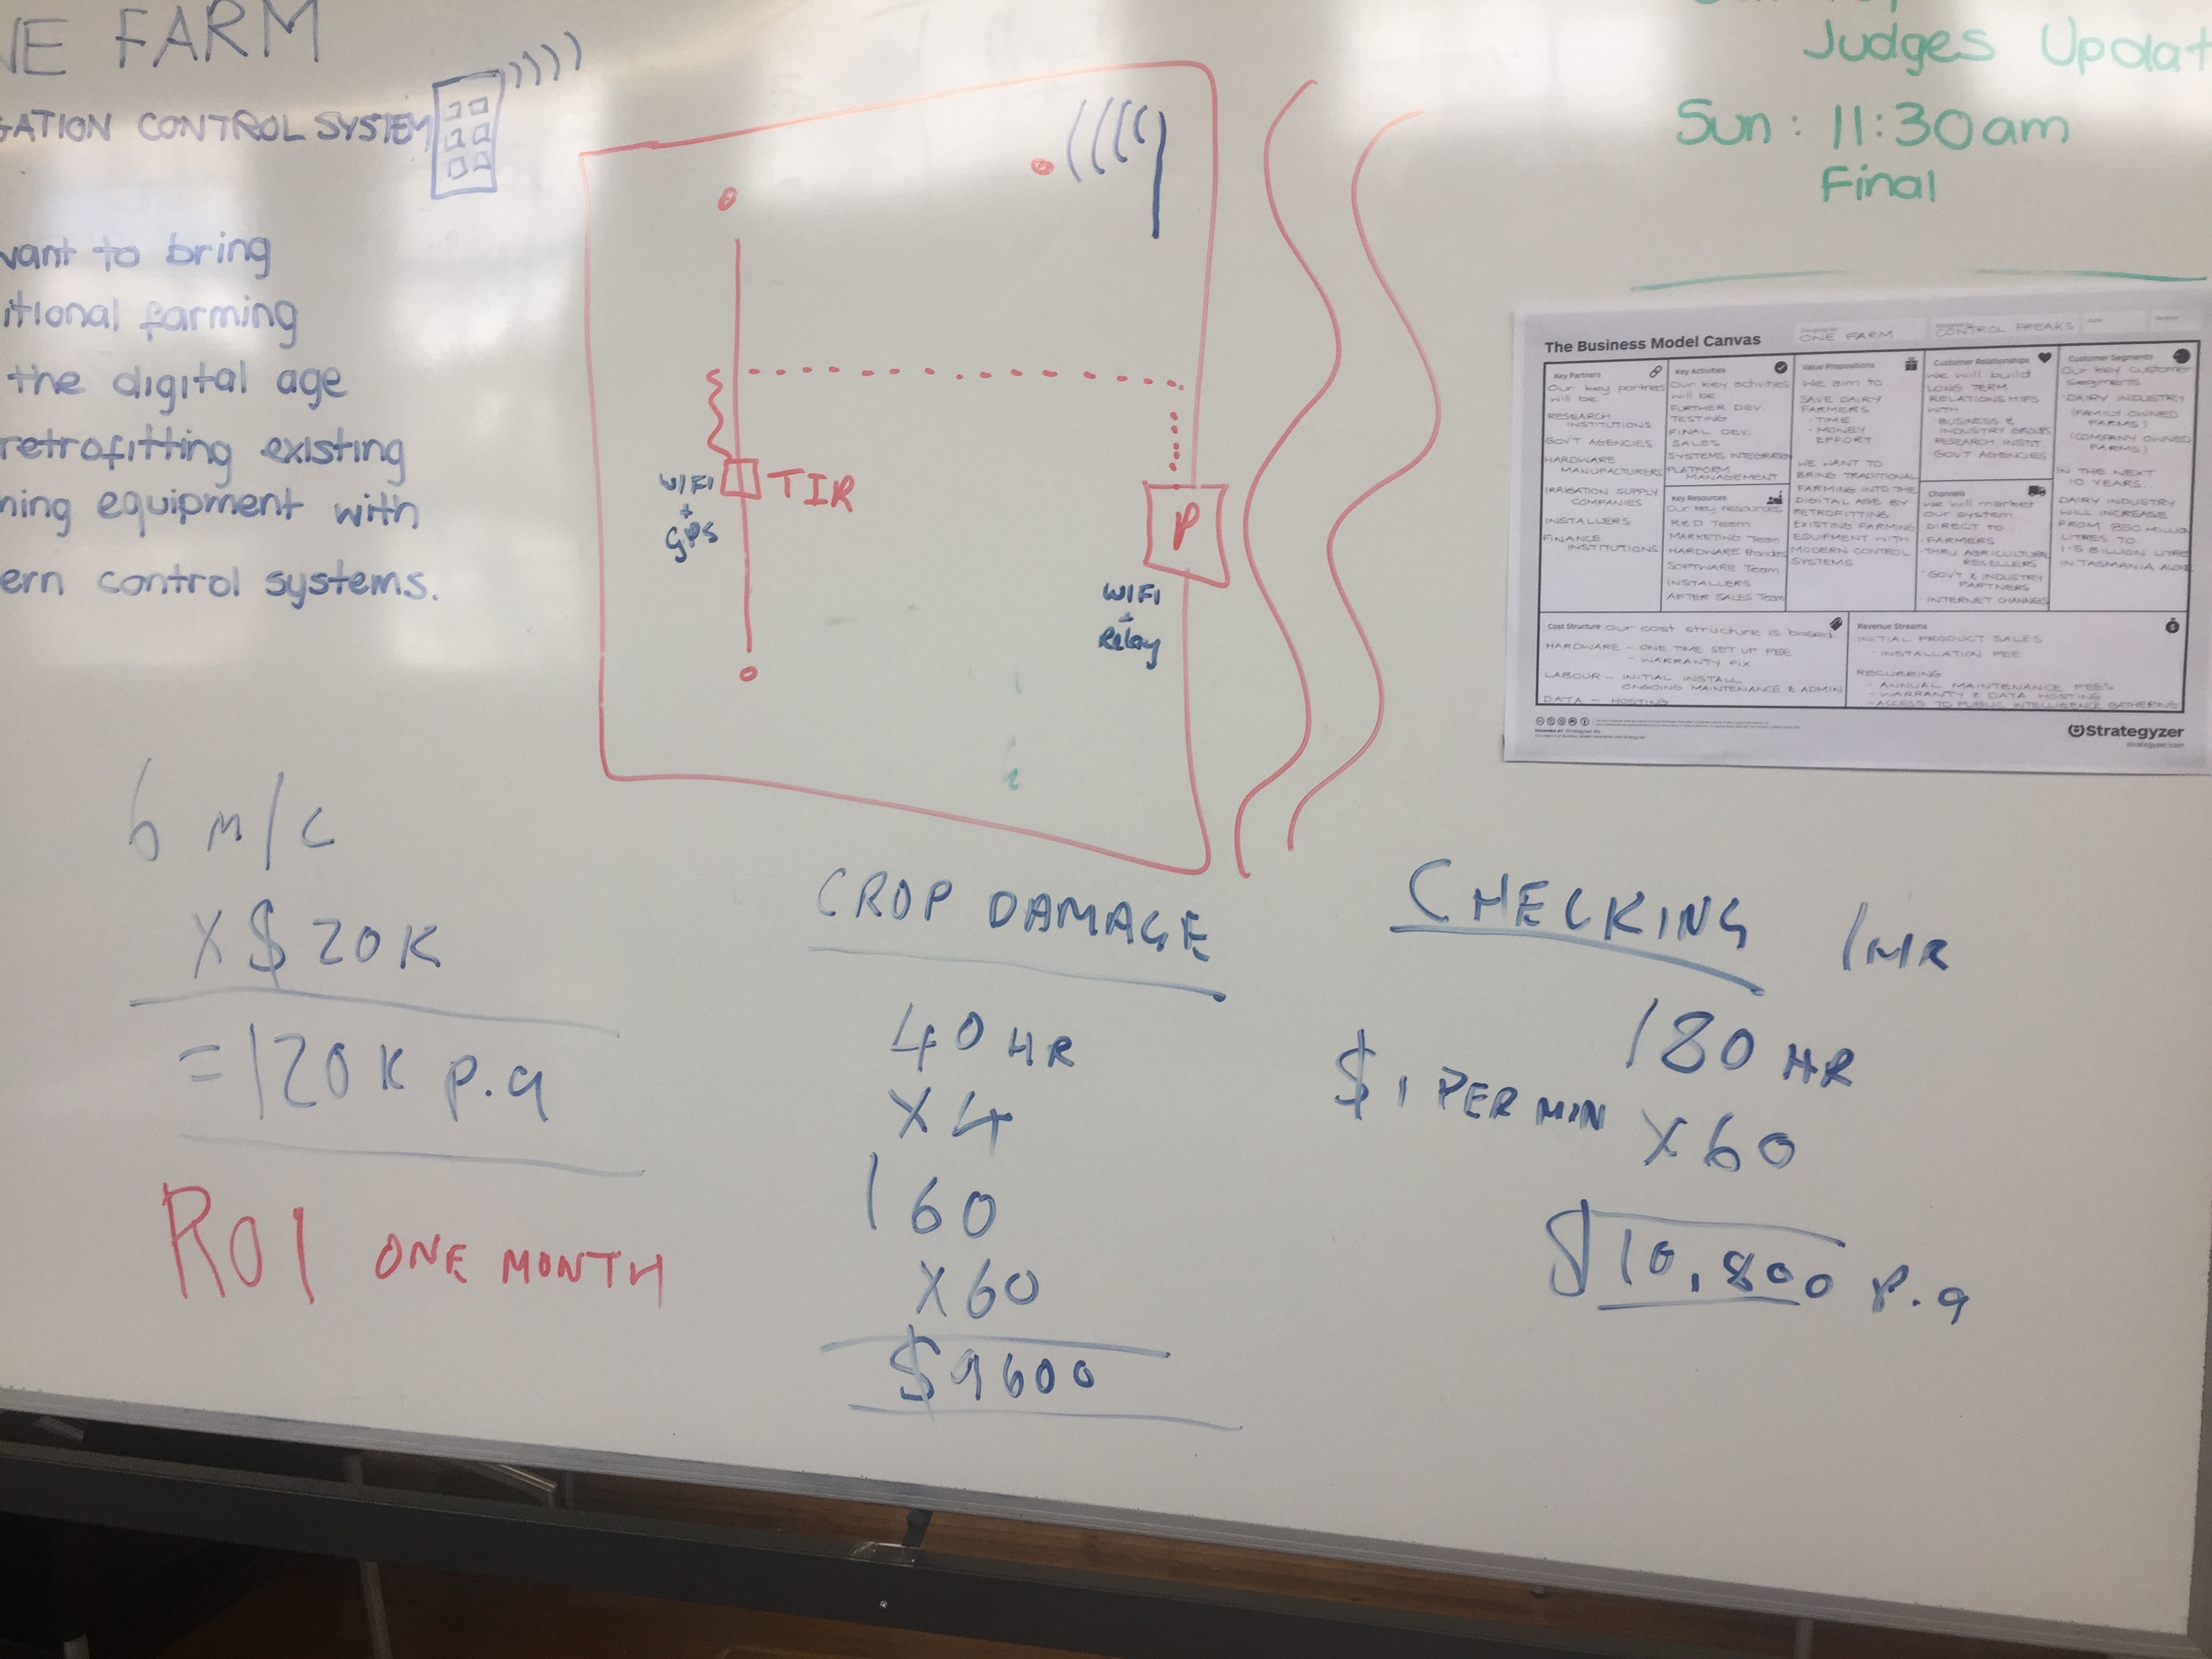 NE FARM
GATION CONTROL SYSTEM
want to bring
itional farming
the digital age
retrofitting existing
ning equipment with
ern control systems.
WIFI
+
GPS
TIR
P
WIFI
+
Relay
Judges Updat
Sun: 11:30am
Final
The Business Model Canvas
ONE FARM
CONTROL FREAKS
Key Partners
Our key partners
will be
RESEARCH
INSTITUTIONS
GOV'T AGENCIES
HARDWARE
MANUFACTURERS
IRRIGATION SUPPLY
COMPANIES
INSTALLERS
FINANCE
INSTITUTIONS
Key Activities
Our key activities
will be
FURTHER DEV.
TESTING
FINAL DEV.
SALES
SYSTEMS INTEGRATION
PLATFORM
MANAGEMENT
Key Resources
Our key resources
R&D Team
MARKETING Team
HARDWARE
SOFTWARE Team
INSTALLERS
AFTER SALES Team
Value Propositions
We aim to
SAVE DAIRY
FARMERS
- TIME
- MONEY
EFFORT
WE WANT TO
BRING TRADITIONAL
FARMING INTO THE
DIGITAL AGE BY
RETROFITTING
EXISTING FARMING
EQUIPMENT WITH
MODERN CONTROL
SYSTEMS
Customer Relationships
We will build
LONG TERM
RELATIONSHIPS
WITH
- BUSINESS &
INDUSTRY GROUPS
RESEARCH INSTIT.
GOVT AGENCIES
Channels
We will market
our system
DIRECT TO
- FARMERS
- THRU AGRICULTURAL
RESELLERS
- GOV'T & INDUSTRY
PARTNERS
INTERNET CHANNELS
Customer Segments
Our key customer
segments
- DAIRY INDUSTRY
(FAMILY OWNED
FARMS)
(COMPANY OWNED
FARMS)
IN THE NEXT
10 YEARS...
DAIRY INDUSTRY
WILL INCREASE
FROM 850 MILLIO
LITRES TO
1.5 BILLION LITRE
IN TASMANIA ALONE
Cost Structure our cost structure is based
HARDWARE - ONE TIME SET UP FEE
- WARRANTY FIX
LABOUR - INITIAL INSTALL
ONGOING MAINTENANCE & ADMIN
DATA - HOSTING
Revenue Streams
INITIAL PRODUCT SALES
- INSTALLATION FEE
RECURRING
- ANNUAL MAINTENANCE FEES
- WARRANTY & DATA HOSTING
- ACCESS TO PUBLIC INTELLIGENCE GATHERING
Strategyzer
strategyzer.com
6 M/C
X $ 20K
= 120K p.a
ROI ONE MONTH
CROP DAMAGE
40 HR
X 4
160
X 60
$9600
CHECKING 1HR
180 HR
$1 PER MIN X 60
$10,800 p.a